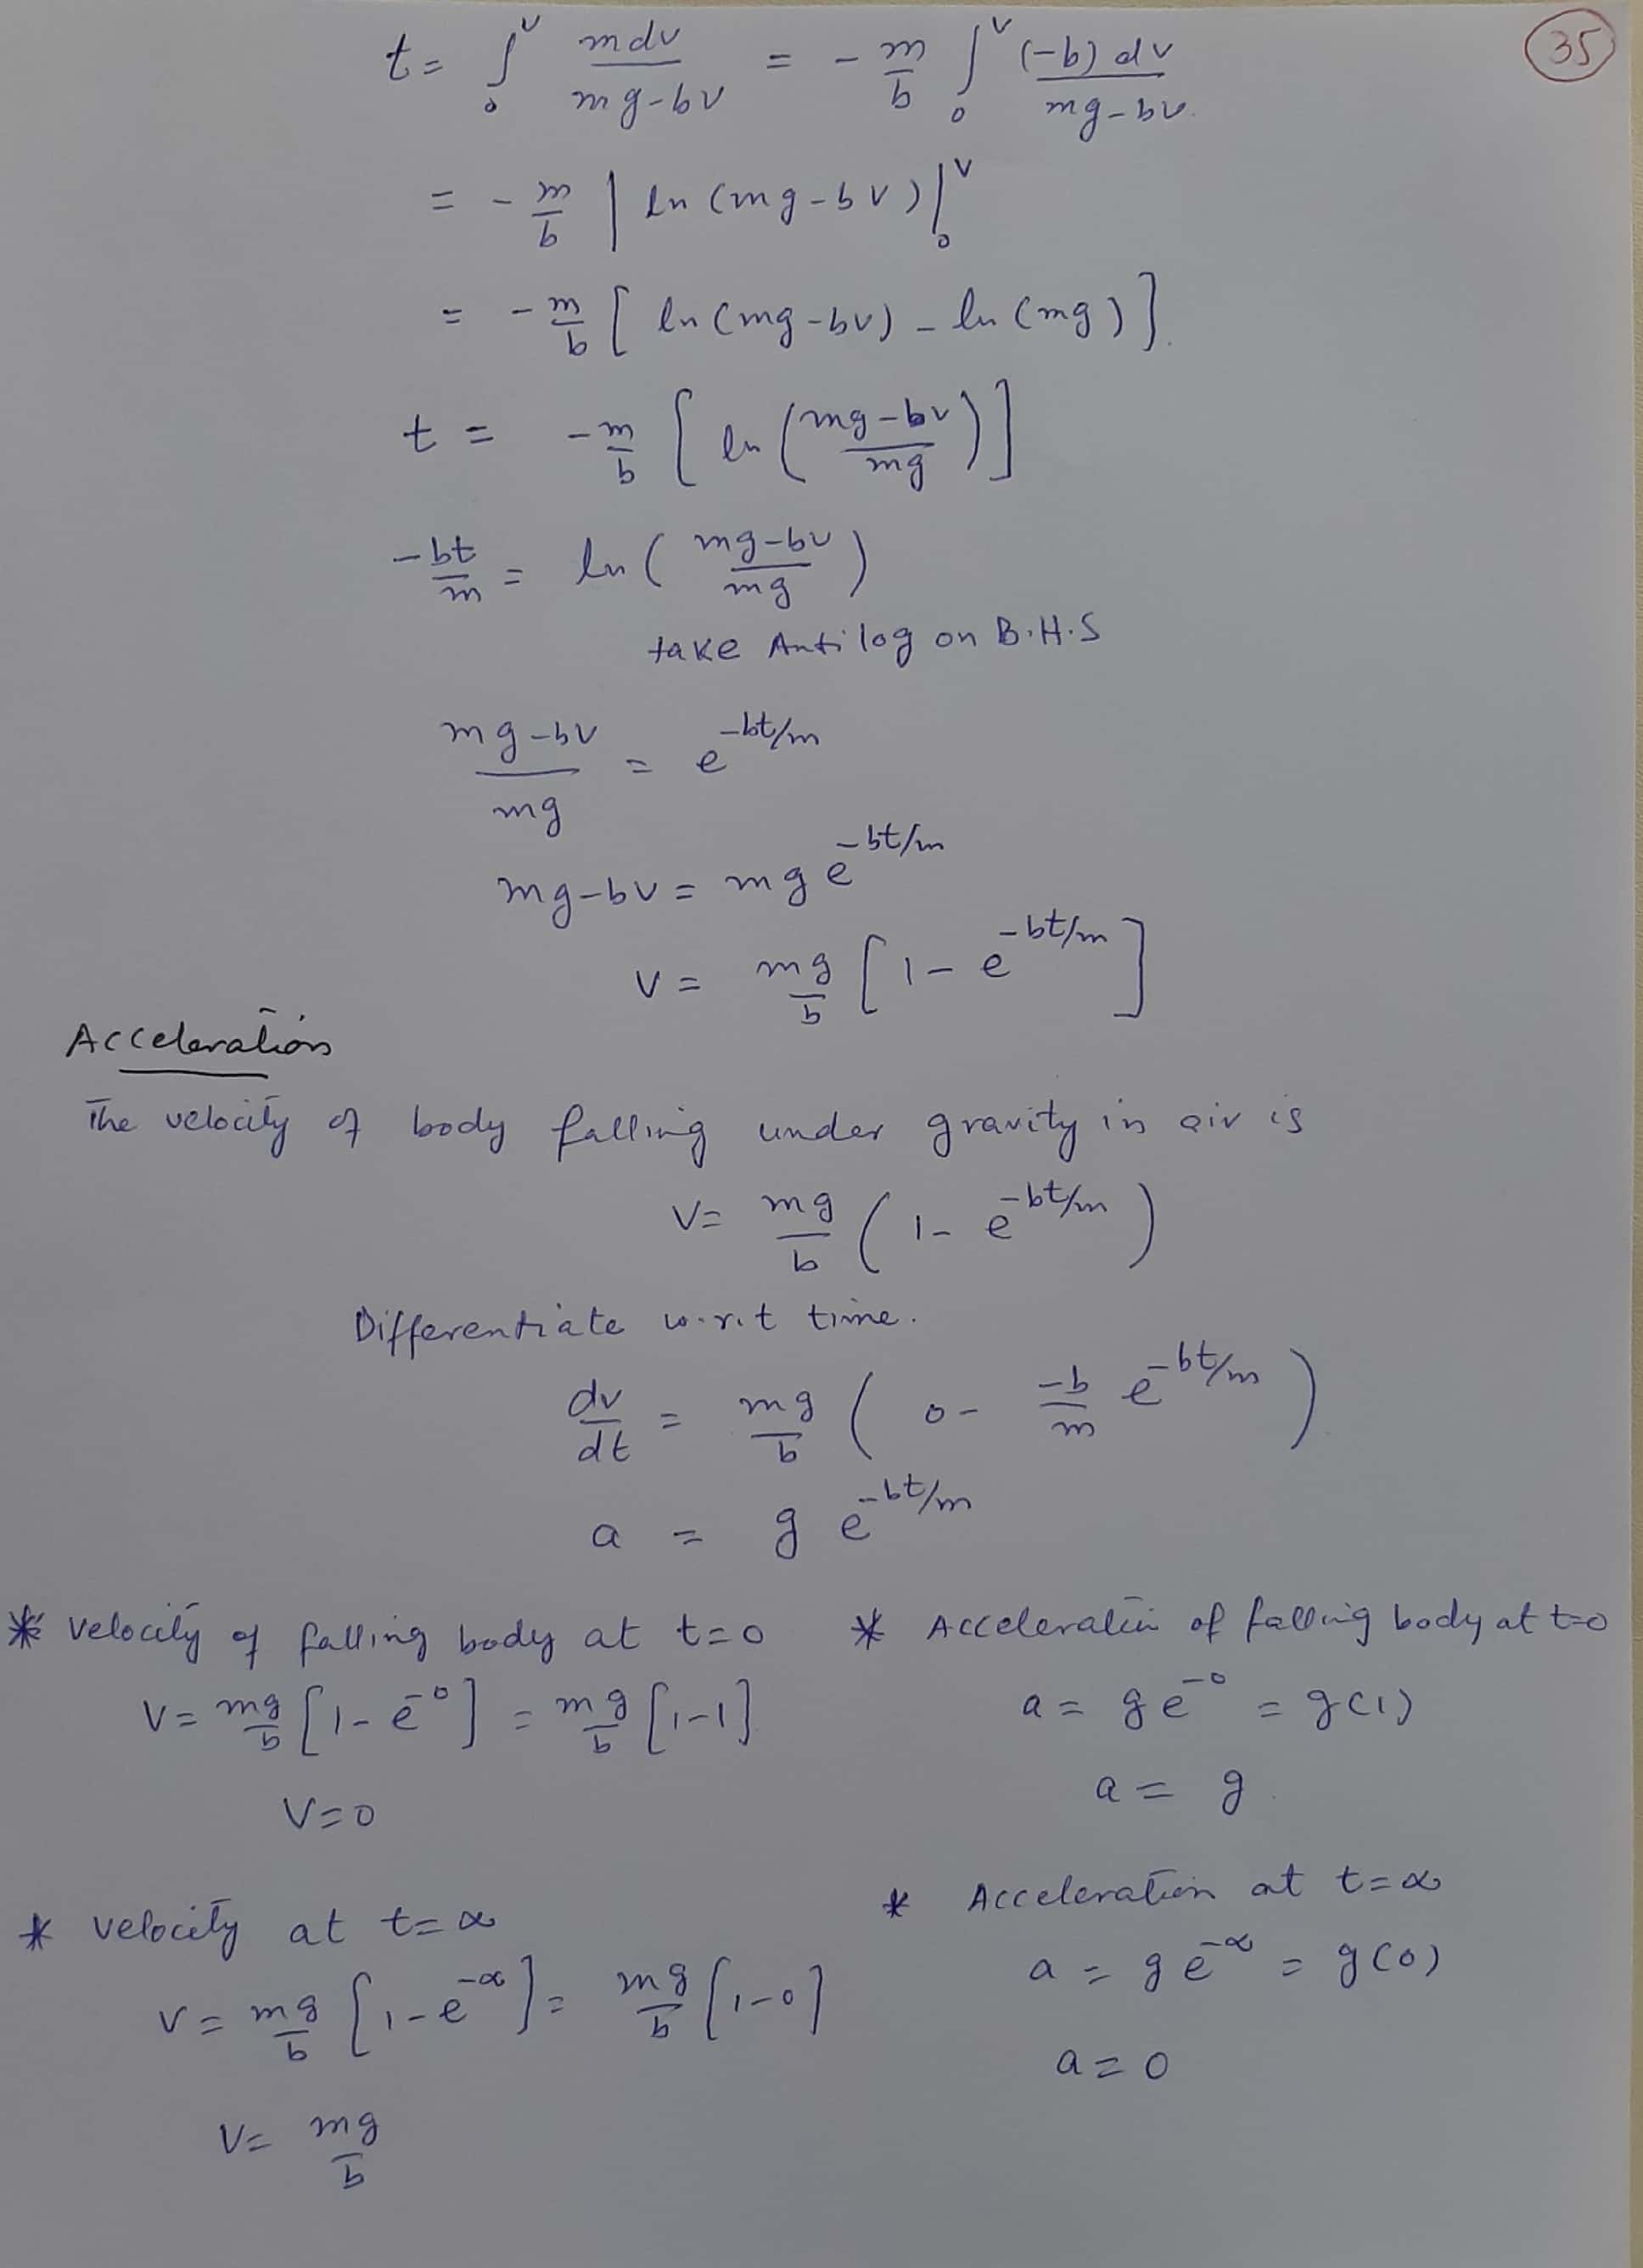 35
t = ∫₀^v mdv/(mg-bv) = - m/b ∫₀^v (-b) dv/(mg-bv)
= - m/b | ln (mg-bv) |₀^v
= - m/b [ ln (mg-bv) - ln (mg) ]
t = - m/b [ ln ( (mg-bv)/mg ) ]
-bt/m = ln ( (mg-bv)/mg )
take Antilog on B.H.S
(mg-bv)/mg = e^(-bt/m)
mg-bv = mg e^(-bt/m)
v = mg/b [ 1 - e^(-bt/m) ]
Acceleration
The velocity of body falling under gravity in air is
v = mg/b ( 1 - e^(-bt/m) )
Differentiate w.r.t time.
dv/dt = mg/b ( 0 - -b/m e^(-bt/m) )
a = g e^(-bt/m)
* Velocity of falling body at t=0
v = mg/b [1 - e^(-0)] = mg/b [1-1]
v=0
* Acceleration of falling body at t=0
a = g e^(-0) = g(1)
a = g
* Velocity at t=∞
v = mg/b [1 - e^(-∞)] = mg/b [1-0]
v = mg/b
* Acceleration at t=∞
a = g e^(-∞) = g(0)
a = 0